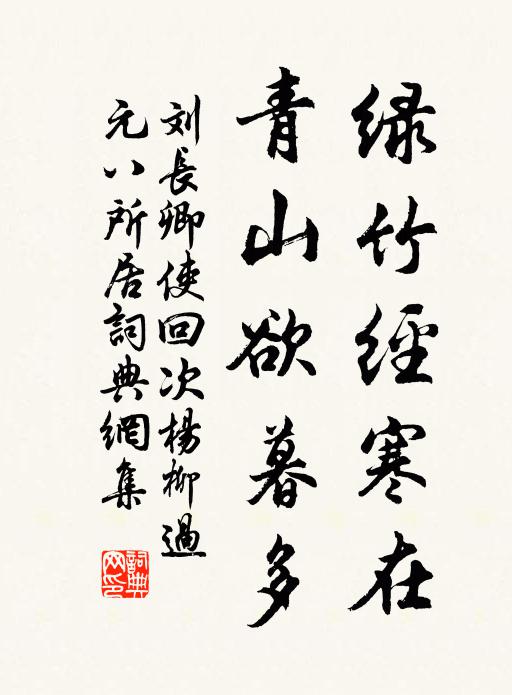 绿竹經寒在
青山欲暮多
刘長卿使回次楊柳過
元八所居詞典網集
詞典
网印